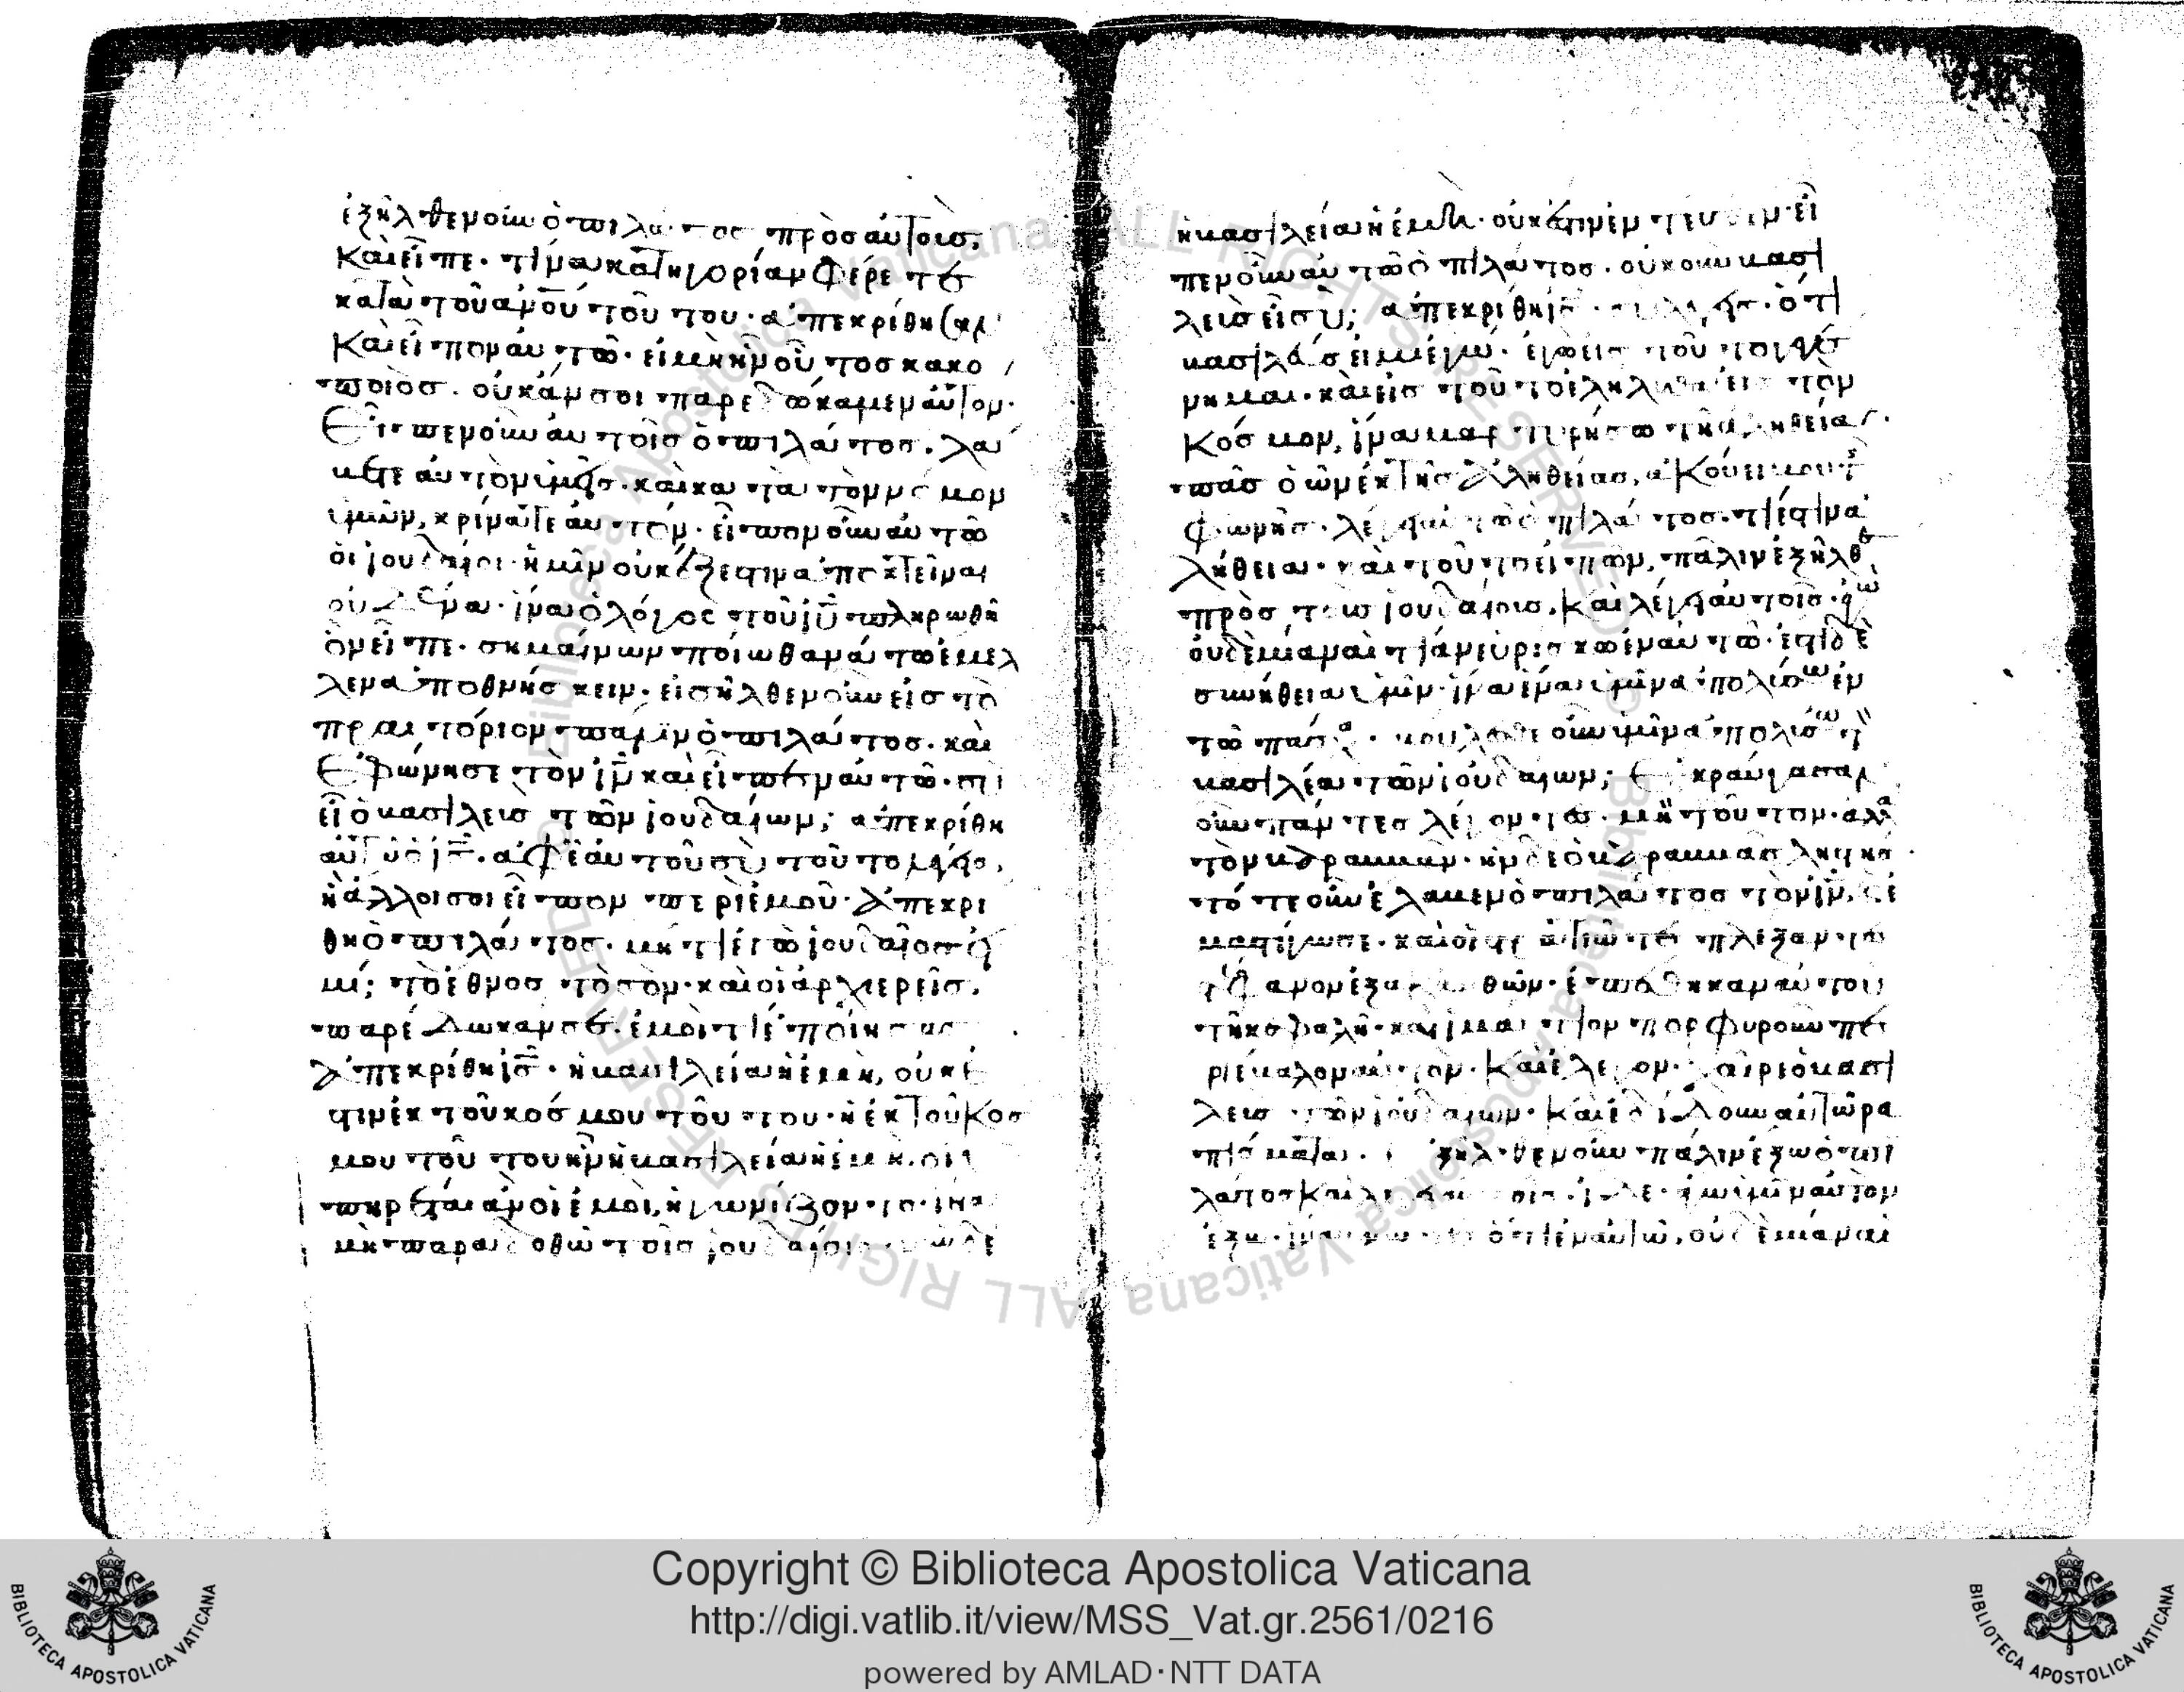 ἐξῆλθεν οὖν ὁ πιλάτος πρὸς αὐτοὺς,
Καὶ εἶπε. τίνα κατηγορίαν φέρετε
κατὰ τοῦ ἀνοῦ τούτου. ἀπεκρίθησαν
Καὶ εἶπον αὐτῶ. εἰ μὴ ἦν οὗτος κακο
ποιὸς. οὐκ ἄν σοι παρεδώκαμεν αὐτον.
Εἶπεν οὖν αὐτοῖς ὁ πιλάτος. λά
βετε αὐτὸν ὑμεῖς. καὶ κατὰ τὸν νόμον
ὑμῶν, κρίνατε αὐτόν. εἶπον οὖν αὐτῶ
οἱ ἰουδαῖοι. ἡμῖν οὐκ ἔξεστιν ἀποκτεῖναι
οὐδένα. ἵνα ὁ λόγος τοῦ ἰῦ πληρωθῆ
ὃν εἶπε. σημαίνων ποίω θανάτω ἔμελ
λεν ἀποθνήσκειν. εἰσῆλθεν οὖν εἰς τὸ
πραιτόριον πάλιν ὁ πιλάτος. καὶ
Ἐφώνησε τὸν ἰν καὶ εἶπεν αὐτῶ. σὺ
εἶ ὁ βασιλεὺς τῶν ἰουδαίων; ἀπεκρίθη
αὐτῶ ὁ ἰς. ἀφ' ἑαυτοῦ σὺ τοῦτο λέγεις,
ἢ ἄλλοι σοι εἶπον περὶ ἐμοῦ. Ἀπεκρί
θη ὁ πιλάτος. μὴ τι ἐγὼ ἰουδαῖος εἰ
μί; τὸ ἔθνος τὸ σὸν. καὶ οἱ ἀρχιερεῖς.
παρέδωκάν σε. ἐμοὶ τί ἐποίησας
Ἀπεκρίθη ἰς. ἡ βασιλεία ἡ ἐμὴ, οὐκ ἔ
στιν ἐκ τοῦ κόσμου τούτου. ἡ ἐκ τοῦ Κοσ
μου τούτου ἦν ἡ βασιλεία ἡ ἐμὴ. οἱ ὑ
πηρέται ἂν οἱ ἐμοὶ, ἠγωνίζοντο. ἵνα
μὴ παραδοθῶ τοῖς ἰουδαίοις νῦν δὲ
ἡ βασιλεία ἡ ἐμὴ. οὐκ ἔστιν ἐντεῦθεν. εἶ
πεν οὖν αὐτῶ ὁ πιλάτος. οὐκοῦν βασι
λεὺς εἶ σὺ; ἀπεκρίθη ἰς. σὺ λέγεις. ὅτι
βασιλεύς εἰμι ἐγώ. ἐγὼ εἰς τοῦτο γεγέν
νημαι. καὶ εἰς τοῦτο ἐλήλυθα εἰς τὸν
Κόσμον, ἵνα μαρτυρήσω τῆ ἀληθεία.
πᾶς ὁ ὢν ἐκ τῆς ἀληθείας, ἀκούει μου τῆς
φωνῆς. λέγει αὐτῶ ὁ πιλάτος. τί ἐστιν ἀ
λήθεια. καὶ τοῦτο εἰπὼν, πάλιν ἐξῆλθε
πρὸς τοὺς ἰουδαίους. Καὶ λέγει αὐτοῖς. ἐγὼ
οὐδεμίαν αἰτίαν εὑρίσκω ἐν αὐτῶ. ἔστι δὲ
συνήθεια ὑμῖν. ἵνα ἕνα ὑμῖν ἀπολύσω ἐν
τῶ πάσχα. βούλεσθε οὖν ὑμῖν ἀπολύσω τὸν
βασιλέα τῶν ἰουδαίων; Ἐκραύγασαν
οὖν πάντες λέγοντες. μὴ τοῦτον. ἀλλὰ
τὸν βαραββᾶν. ἦν δὲ ὁ βαραββᾶς ληστής.
τότε οὖν ἔλαβεν ὁ πιλάτος τὸν ἰν, καὶ ἐ
μαστίγωσε. καὶ οἱ στρατιῶται πλέξαντες
στέφανον ἐξ ἀκανθῶν. ἐπέθηκαν αὐτοῦ
τῆ κεφαλῆ. καὶ ἱμάτιον πορφυροῦν πε
ριέβαλον αὐτὸν. Καὶ ἔλεγον. χαῖρε ὁ βασι
λεὺς τῶν ἰουδαίων. Καὶ ἐδίδουν αὐτῶ ῥα
πίσματα. ἐξῆλθεν οὖν πάλιν ἔξω ὁ πι
λάτος Καὶ λέγει αὐτοῖς. ἴδε. ἄγω ὑμῖν αὐτὸν
ἔξω. ἵνα γνῶτε ὅτι ἐν αὐτῶ, οὐδεμίαν αἰ